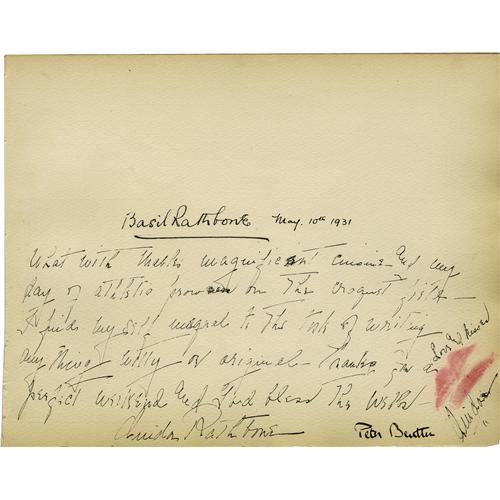 Basil Rathbone May. 10th 1931
What with Mabel's magnificent cuisine and my
day of athletic prowess on the croquet field -
I find my self unequal to the task of writing
anything witty or original - Thanks for a
perfect weekend and God bless the Webbs -
Ouida Rathbone
Love and kisses
Ouida
Peter